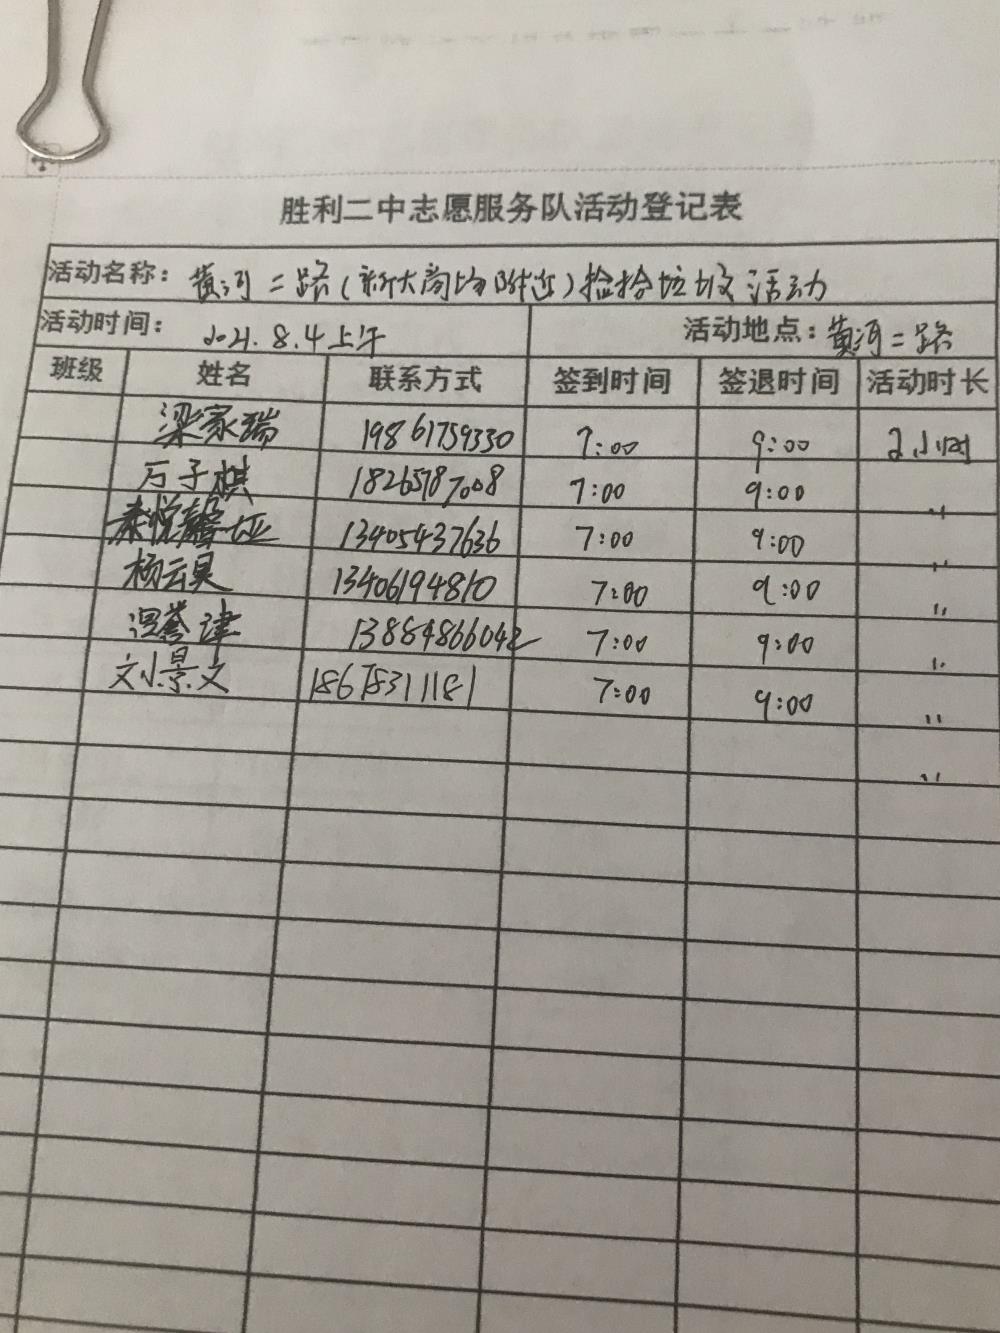 胜利二中志愿服务队活动登记表
活动名称：黄河二路（新大商场附近）捡拾垃圾活动
活动时间：2021.8.4上午 活动地点：黄河二路
班级 姓名 联系方式 签到时间 签退时间 活动时长
梁家瑞 19861759330 7:00 9:00 2小时
万子棋 18265187008 7:00 9:00 〃
秦悦馨 13405437636 7:00 9:00 〃
杨云昊 13406194810 7:00 9:00 〃
誉津 13884866042 7:00 9:00 〃
刘景文 18678311181 7:00 9:00 〃
〃